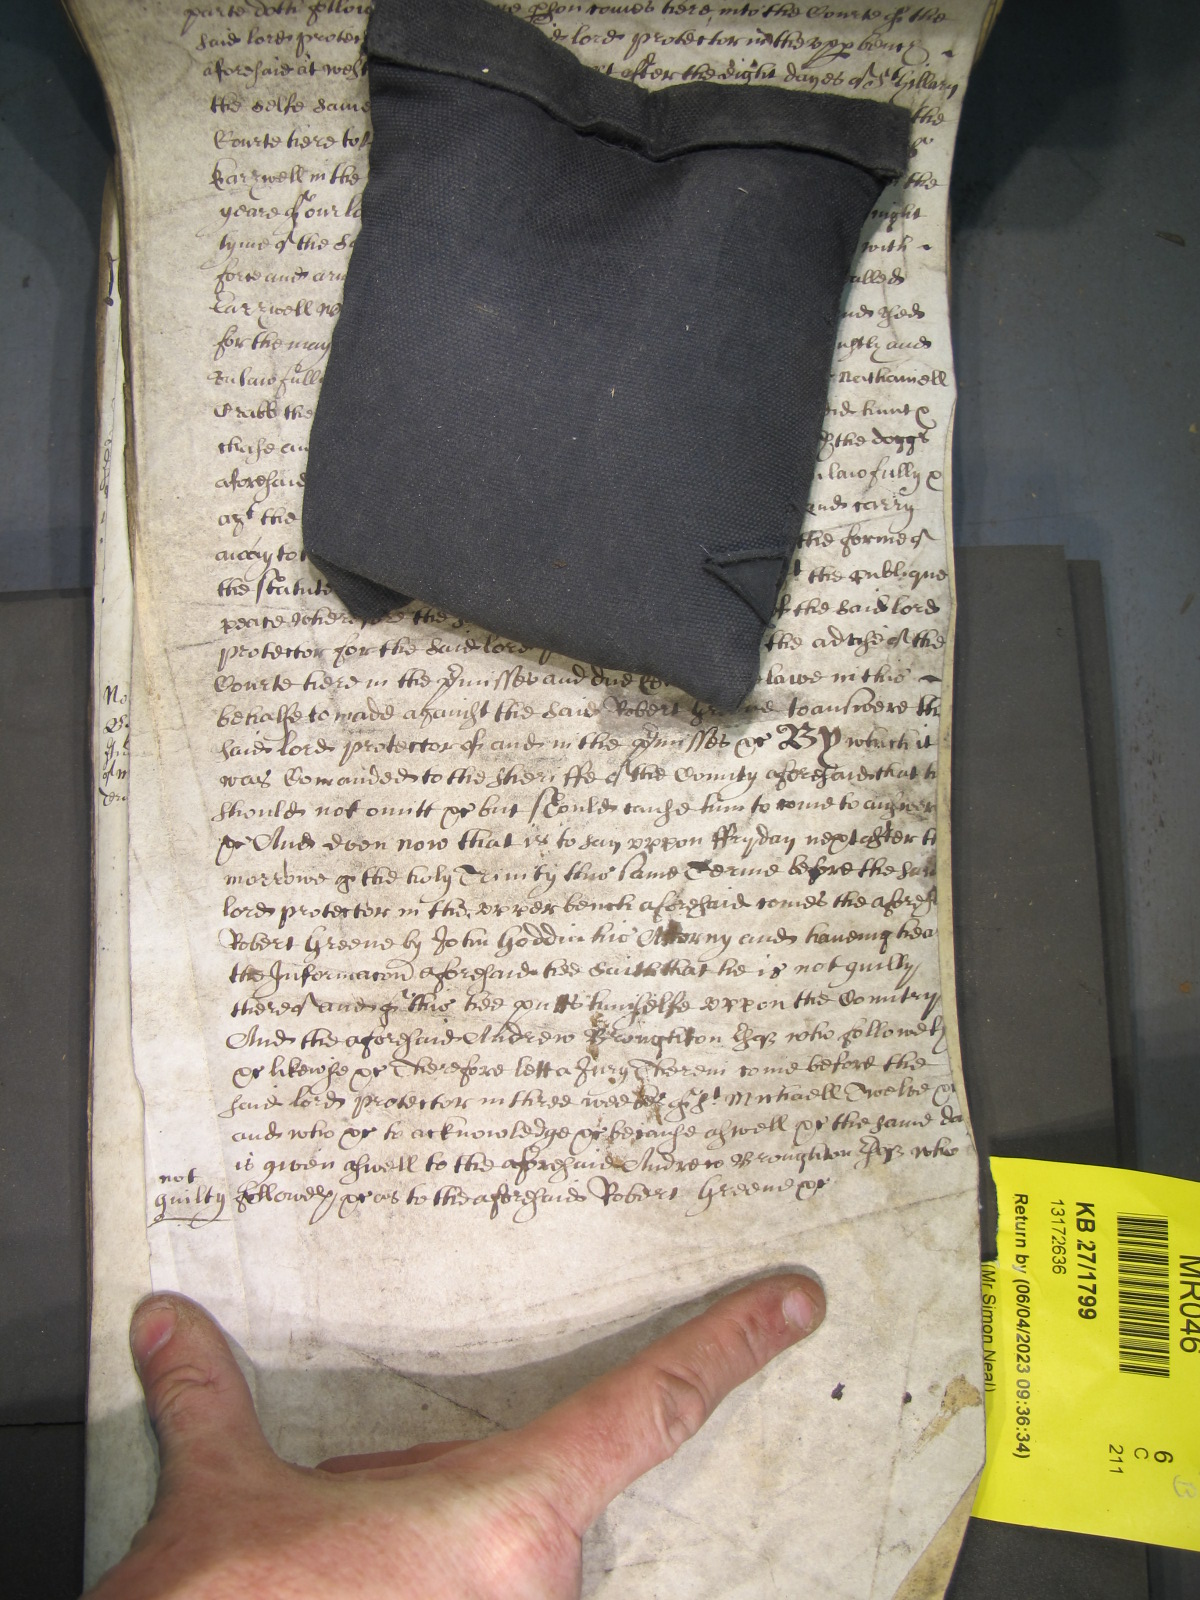 parte doth follow
pson comes here into the Courte of the
said lord protect
lord protector in the upp bench
aforesaid at west
after the eight dayes of St Hillary
the selfe same
the
Courte here to
Earswell in the
the
yeare of our lo
night
tyme of the sa
with
force and arm
called
Earswell
and did
for the
ngly and
unlawfully
Nathaniell
Crabb the
and hunt &
chase an
the doggs
aforesaid
nlawfully &
agt the
and carry
away to
the forme of
the statute
the publique
peace wherefore the
of the said lord
protector for the said lord
the advise of the
Courte here in the pmisses and due
lawe in this
behalfe to made against the said Robert Greene to answere the
said lord protector of and in the pmisses &c By which it
was Comanded to the sheriffe of the County aforesaid that h
should not omitt &c but should cause him to come to answer
&c And even now that is to say uppon ffryday next after th
morrowe of the holy Trinity this same Terme before the said
lord protector in the upper bench aforesaid comes the aforesd
Robert Greene by John Hoddin his Attorny and haveing hea
the Informacon aforesaid hee saith that he is not guilty
thereof and of this hee putts himselfe uppon the Country
And the aforesaid Andrew Broughton Esq who followeth
&c likewise &c Therefore lett a Jury therein come before the
said lord protector in three weekes of St Michaell Twelve &c
and who &c to acknowledge &c because aswell &c the same da
is given aswell to the aforesaid Andrew Broughton Esq who
not
guilty followeth &c as to the aforesaid Robert Greene &c
MR046
6
C
211
KB 27/1799
13172636
Return by (06/04/2023 09:36:34)
(Mr Simon Neal)